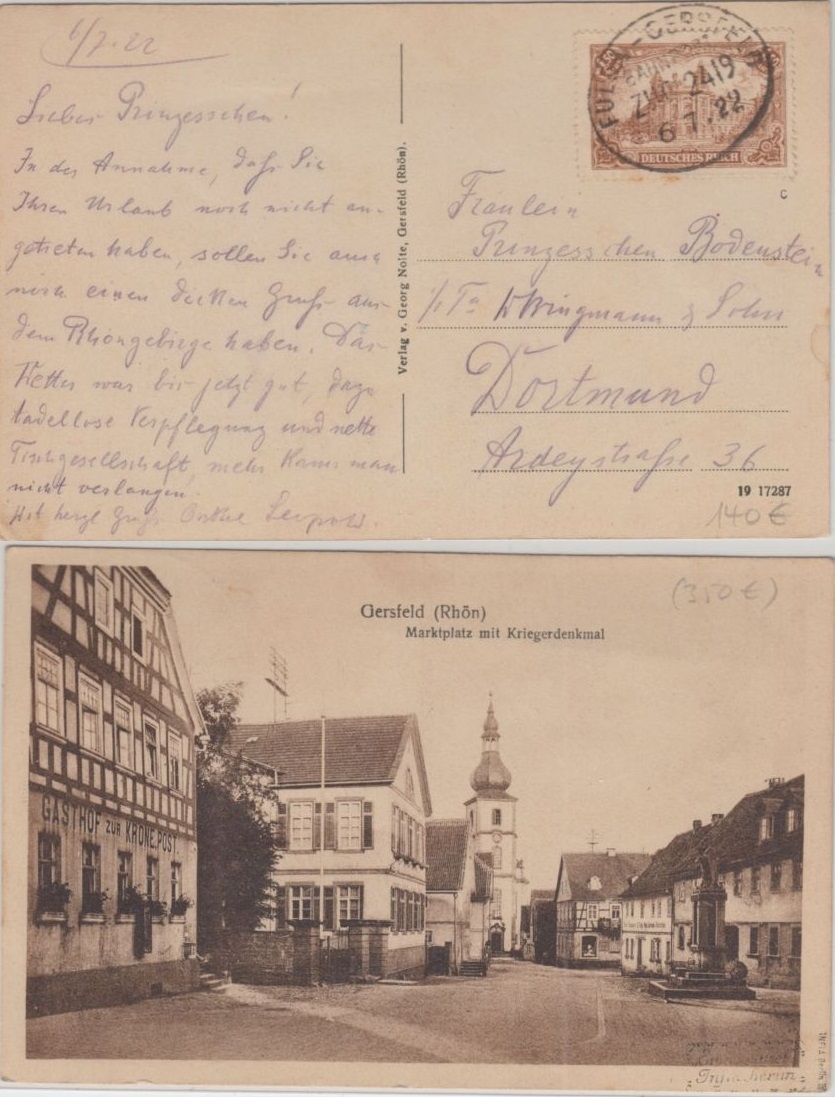 6/7.22
Liebes Prinzesschen!
In der Annahme, daß Sie
Ihren Urlaub noch nicht an-
getreten haben, sollen Sie auch
noch einen dicken Gruß aus
dem Rhöngebirge haben. Das
Wetter war bis jetzt gut, dazu
tadellose Verpflegung und nette
Tischgesellschaft, mehr kann man
nicht verlangen.
Mit herzl Gruß Onkel Leopold.
Verlag v. Georg Nolte, Gersfeld (Rhön).
FULDA-GERSFELD
BAHNPOST
ZUG 2419
6 7.22
DEUTSCHES REICH
C
Fräulein
Prinzesschen Bodenstein
i/Fa Wringmann & Sohn
Dortmund
Ardeystraße 36
19 17287
140 €
(350 €)
Gersfeld (Rhön)
Marktplatz mit Kriegerdenkmal
GASTHOF ZUR KRONE, POST.